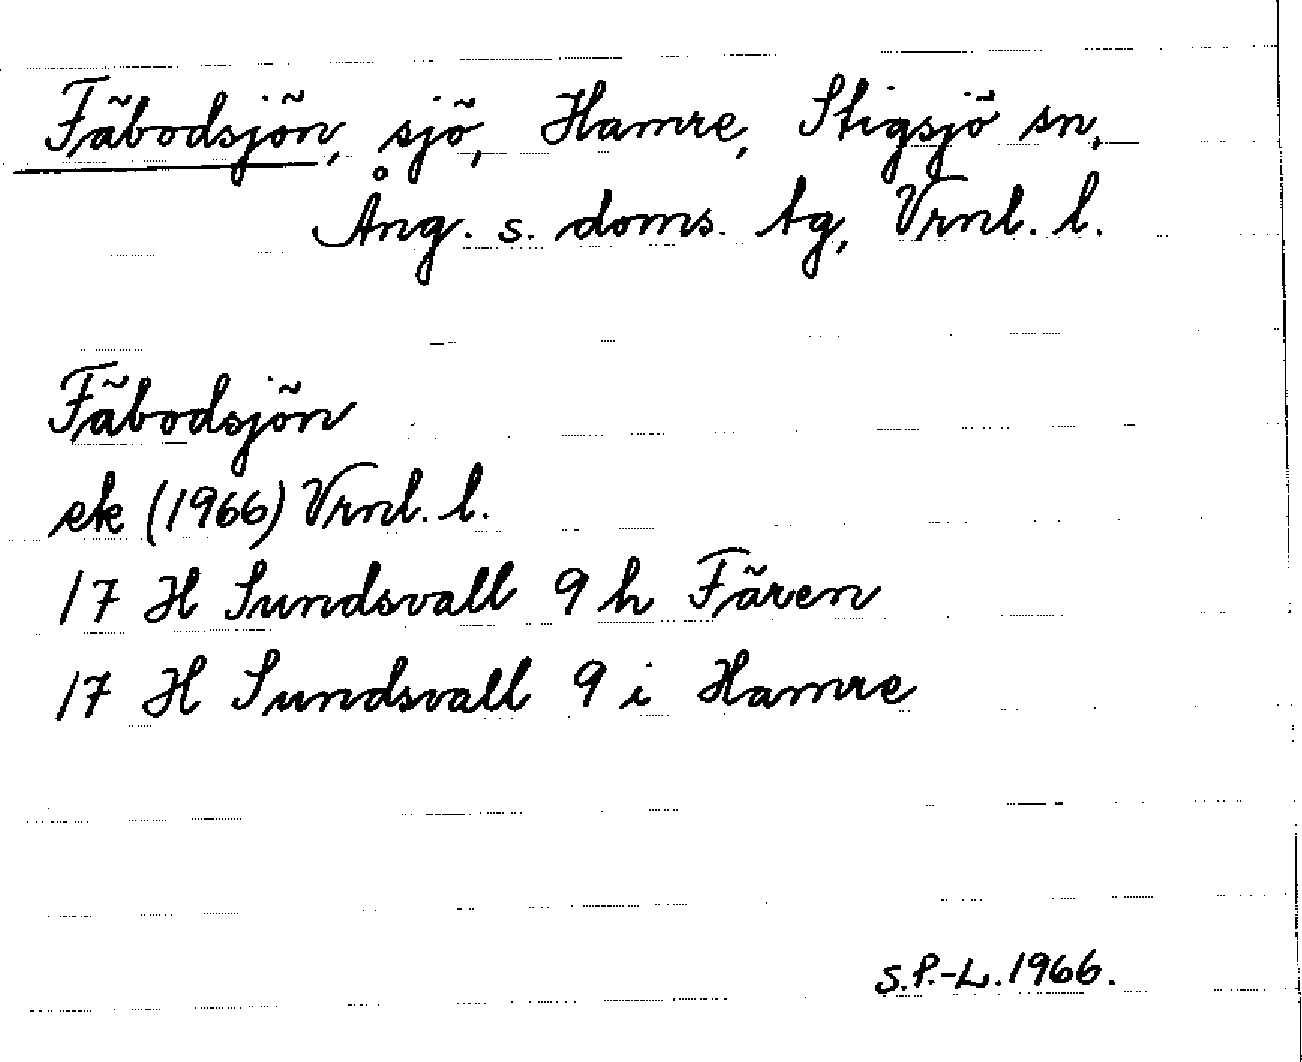 Fäbodsjön, sjö, Hamre, Stigsjö sn,
Ång. s. doms. tg, Vrnl. l.
Fäbodsjön
ek (1966) Vrnl. l.
17 H Sundsvall 9 h Fären
17 H Sundsvall 9 i Hamre
S.P.-L. 1966.